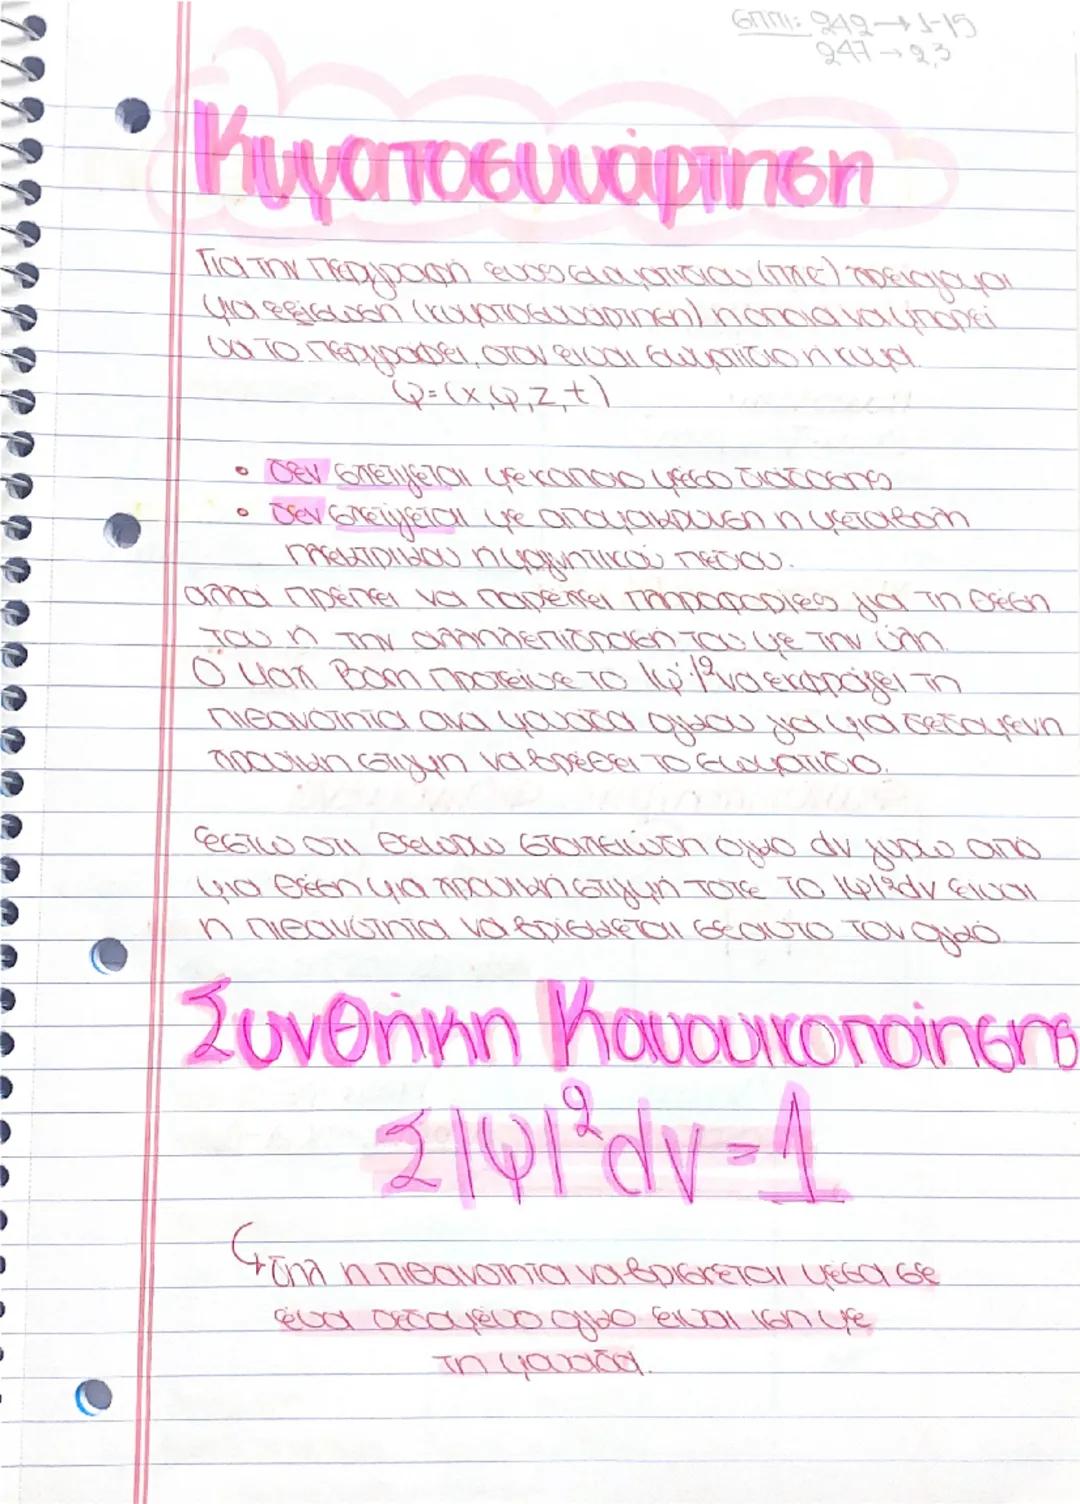 σπιτι: 242→1-15
247→2,3
Κυματοσυνάρτηση
Για την περιγραφη ενος σωματιδιου (πχ e) χρειαζομαι
μια εξίσωση (κυματοσυνάρτηση) η οποια να μπορεί
να το περιγράφει, οταν ειναι σωματιδιο η κυμα.
Ψ=(x,ψ,z,t)
• δεν σχετιζεται με καποιο μέσο διάδοσης
• δεν σχετιζεται με απομακρυνση η μεταβολη
ηλεκτρικου η μαγνητικού πεδιου.
αλλα πρέπει να παρέχει πληροφορίες για τη θέση
του η την αλληλεπιδραση του με την ύλη.
Ο Μαχ Born προτεινε το |ψ|² να εκφράζει τη
πιθανοτητα ανα μοναδα ογκου για μια δεδομενη
χρονικη στιγμη να βρεθει το σωματιδιο.
εστω οτι θεωρω στοιχειωδη ογκο dv γυρω απο
μια θεση μια χρονικη στιγμή τοτε το |ψ|²dv ειναι
η πιθανότητα να βρισκεται σε αυτο τον ογκο.
Συνθήκη Κανονικοποίησης
Σ|ψ|²dv=1
↳ δηλ η πιθανοτητα να βρισκεται μέσα σε
ένα δεδομένο ογκο ειναι ιση με
τη μοναδα.